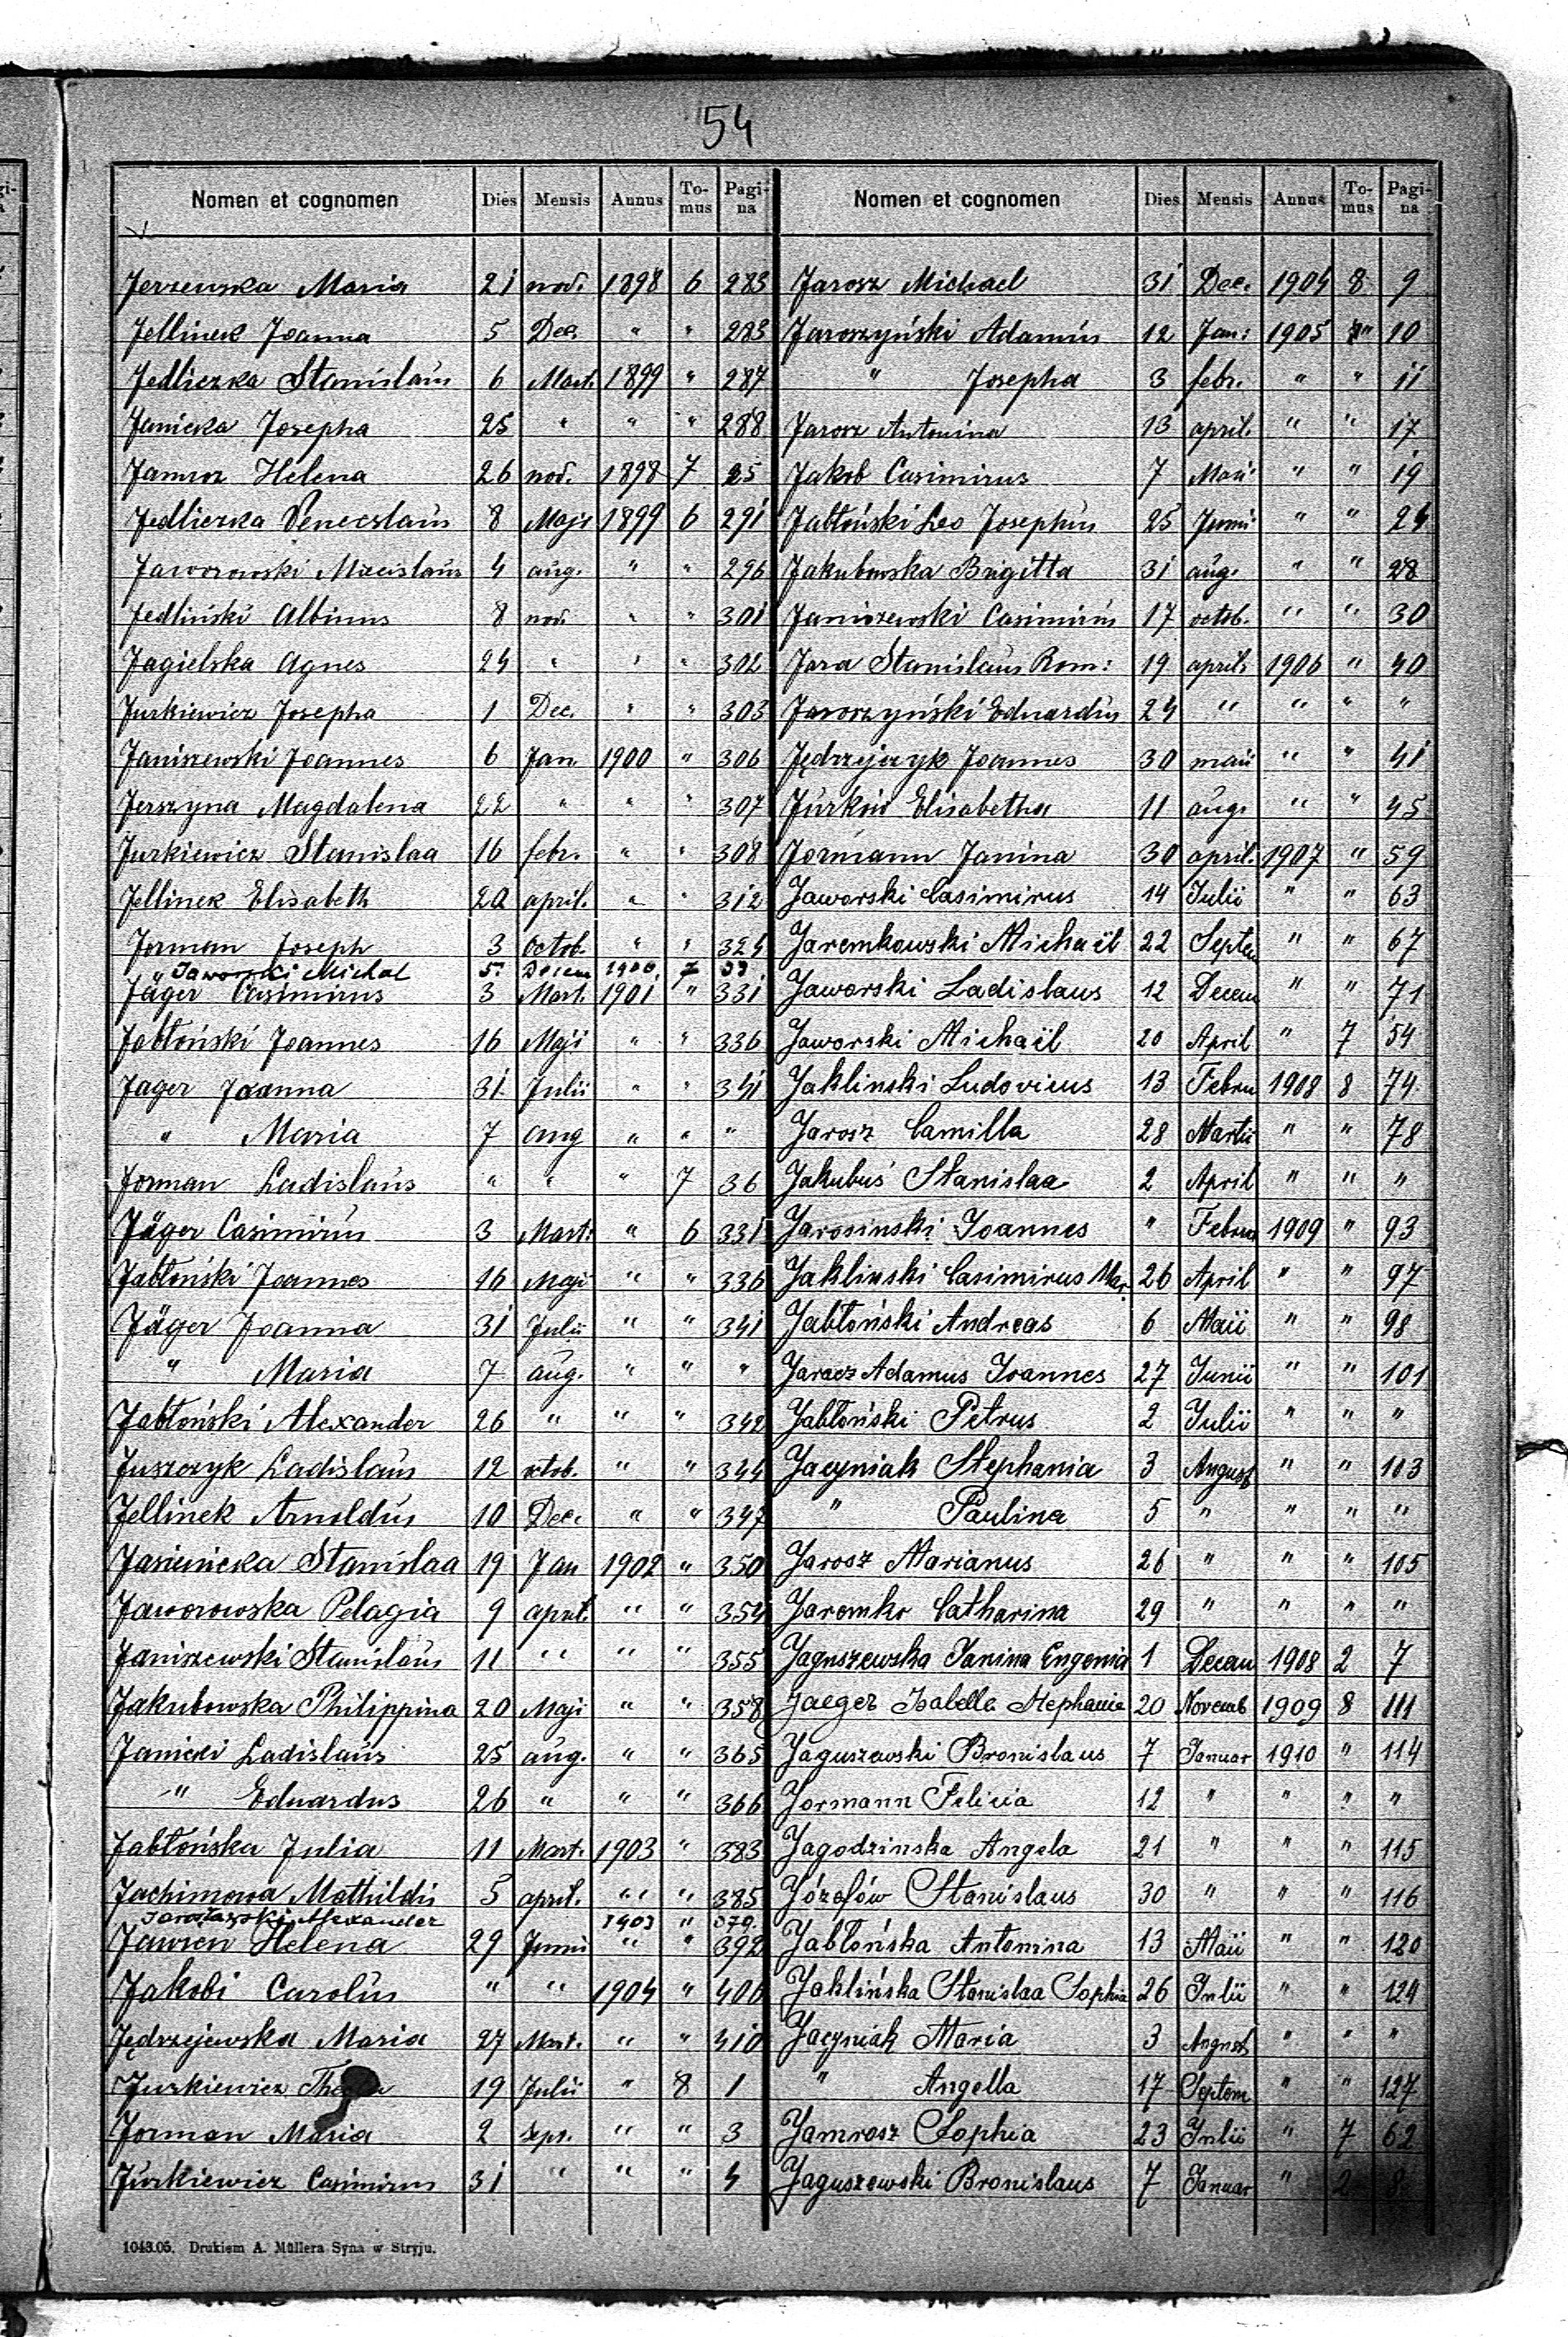 54
Nomen et cognomen Dies Mensis Annus To-mus Pagi-na
Jerzewska Maria 21 nov. 1898 6 283
Jellinek Joanna 5 Dec. " " 283
Jedliczka Stanislaus 6 Mart. 1899 " 287
Janicka Josepha 25 " " " 288
Jamroz Helena 26 nov. 1898 7 25
Jedliczka Venceslaus 8 Maji 1899 6 291
Jaworowski Miecislaus 4 aug. " " 296
Jedliński Albinus 8 nov. " " 301
Jagielska Agnes 24 " " " 302
Jurkiewicz Josepha 1 Dec. " " 303
Janiszewski Joannes 6 Jan 1900 " 306
Jerszyna Magdalena 22 " " " 307
Jurkiewicz Stanislaa 16 febr. " " 308
Jellinek Elisabeth 20 april. " " 312
Jorman Joseph 3 octob. " " 324
" Jaworski Michal 5. Decem 1900. 7 59
Jäger Casimirus 3 Mart. 1901 " 331
Jabłoński Joannes 16 Maji " " 336
Jager Joanna 31 Julii " " 341
" Maria 7 aug " " "
Jorman Ladislaus " " " 7 36
Jäger Casimirus 3 Mart. " 6 331
Jabłoński Joannes 16 Maji " " 336
Jäger Joanna 31 Julii " " 341
" Maria 7 aug. " " "
Jabłoński Alexander 26 " " " 342
Juszczyk Ladislaus 12 octob. " " 344
Jellinek Arnoldus 10 Dec. " " 347
Jasienicka Stanislaa 19 Jan 1902 " 350
Jaworowska Pelagia 9 april. " " 354
Janiszewski Stanislaus 11 " " " 355
Jakubowska Philippina 20 Maji " " 358
Janicki Ladislaus 25 aug. " " 365
" Eduardus 26 " " " 366
Jabłońska Julia 11 Mart. 1903 " 383
Jachimowa Mathildis 5 april. " " 385
Jarosławski Alexander 1903 " 379.
Jawien Helena 29 Junii " " 392
Jakobi Carolus " " 1904 " 406
Jędrzejewska Maria 27 Mart. " " 410
Jurkiewicz 19 Julii " 8 1
Jorman Maria 2 sept. " " 3
Jurkiewicz Casimirus 31 " " " 4
1043.05. Drukiem A. Müllera Syna w Stryju.
Nomen et cognomen Dies Mensis Annus To-mus Pagi-na
Jarosz Michael 31 Dec. 1904 8 9
Jaroszyński Adamus 12 Jan: 1905 " 10
" Josepha 3 febr. " " 11
Jarosz Antonina 13 april. " " 17
Jakob Casimirus 7 Maii " " 19
Jabłoński Leo Josephus 25 Junii " " 24
Jakubowska Brigitta 31 aug. " " 28
Janiszewski Casimirus 17 octob. " " 30
Jara Stanislaus Rom: 19 april. 1906 " 40
Jaroszyński Eduardus 24 " " " "
Jędrzejczyk Joannes 30 maii " " 41
Jurków Elisabetha 11 aug. " " 45
Jormann Janina 30 april. 1907 " 59
Jaworski Casimirus 14 Iulii " " 63
Jaremkowski Michaël 22 Septem " " 67
Jaworski Ladislaus 12 Decem " " 71
Jaworski Michaël 20 April " 7 54
Jaklinski Ludovicus 13 Febru 1908 8 74
Jarosz Camilla 28 Martii " " 78
Jakubus Stanislaa 2 April " " "
Jarosinski Joannes " Febru 1909 " 93
Jaklinski Casimirus Mar. 26 April " " 97
Jabłoński Andreas 6 Maii " " 98
Jaracz Adamus Ioannes 27 Iunii " " 101
Jabłoński Petrus 2 Iulii " " "
Jacyniak Stephania 3 August " " 103
" Paulina 5 " " " "
Jarosz Marianus 26 " " " 105
Jaremko Catharina 29 " " " "
Jaguszewska Janina Eugenia 1 Decem 1908 2 7
Jaeger Isabella Stephania 20 Novemb 1909 8 111
Jaguszewski Bronislaus 7 Januar 1910 " 114
Jormann Felicia 12 " " " "
Jagodzinska Angela 21 " " " 115
Józefów Stanislaus 30 " " " 116
Jabłońska Antonina 13 Maii " " 120
Jaklińska Stanislaa Sophia 26 Iulii " " 124
Jacyniak Maria 3 August " " "
" Angella 17 Septem " " 127
Jamrosz Sophia 23 Iulii " 7 62
Jaguszewski Bronislaus 7 Januar " 2 8